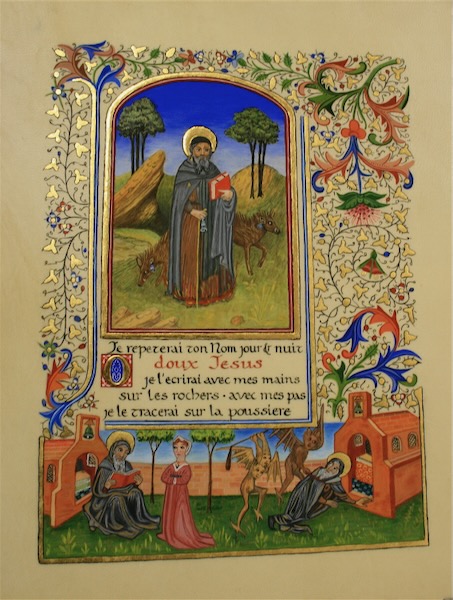 Je repeterai ton Nom jour & nuit
Ô doux Jesus
je l'ecrirai avec mes mains
sur les rochers · avec mes pas
je le tracerai sur la poussiere